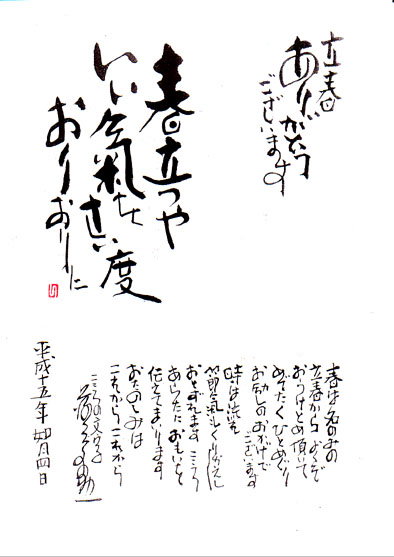 立春
ありがとう
ございます
春立つや
いい
おりおりに
春は名のみの
立春から
おうけとめ頂いて
めでたくひとめぐり
お励しのおかげで
ございます
時は流れ
節氣はくりかえし
おとずれます こころ
あらたに おもいを
伝えてまいります
おたのしみは
これから これから
こころの文字
平成十五年 如月四日